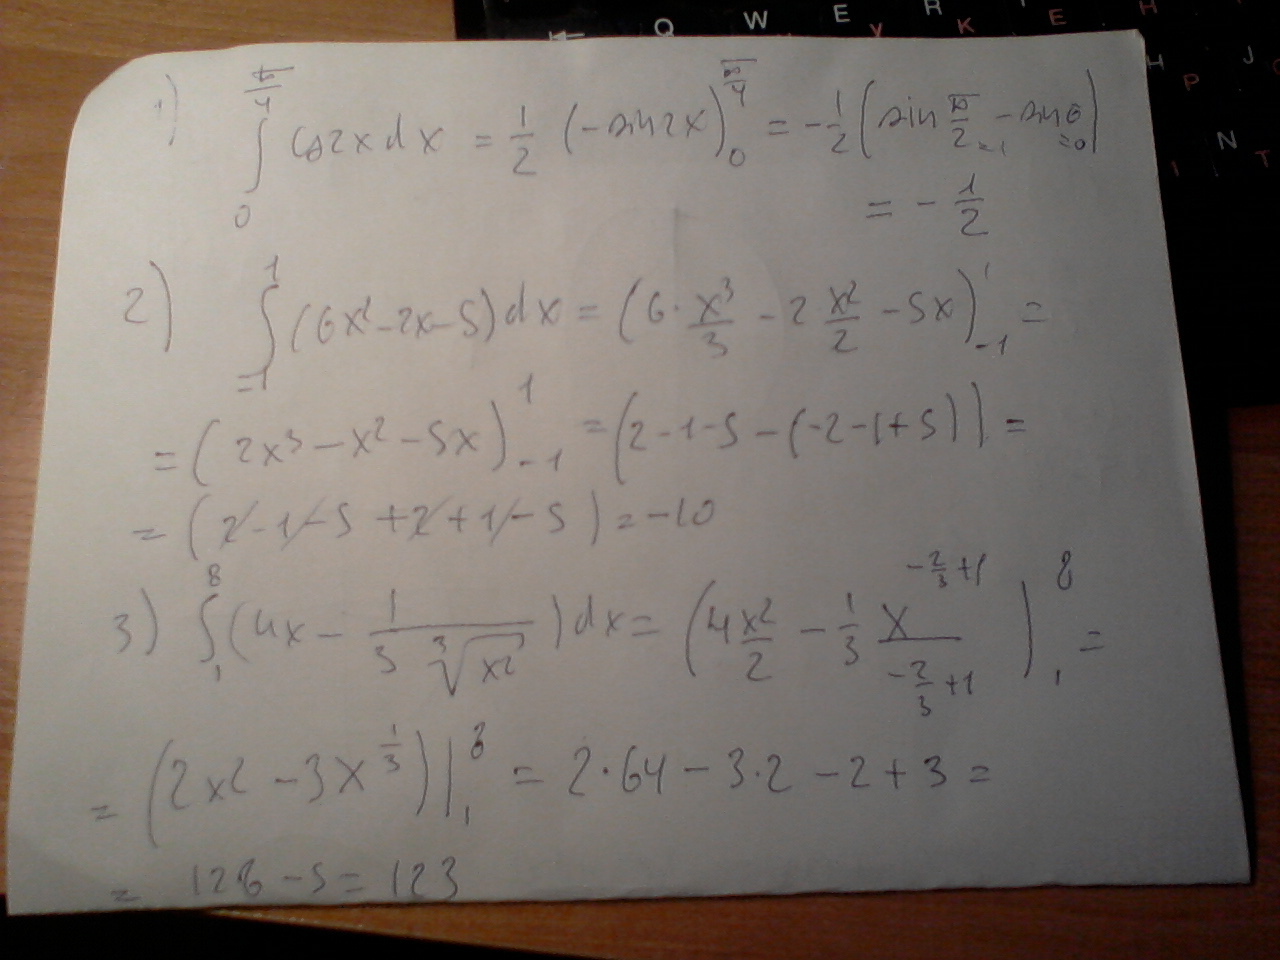 Q W E R
Y K E H
H J
P
N
I T
1) ∫₀^(π/4) cos2x dx = 1/2 (-sin2x)₀^(π/4) = -1/2 (sin π/2 - sin0)
=1 =0
= - 1/2
2) ∫₋₁^1 (6x² - 2x - 5) dx = (6 · x³/3 - 2 x²/2 - 5x)₋₁^1 =
= (2x³ - x² - 5x)₋₁^1 = (2 - 1 - 5 - (-2 - 1 + 5)) =
= (2 - 1 - 5 + 2 + 1 - 5) = -10
3) ∫₁^8 (4x - 1/(3 ∛x²)) dx = (4 x²/2 - 1/3 x^(-2/3+1)/(-2/3+1))₁^8 =
= (2x² - 3x^(1/3))|₁^8 = 2·64 - 3·2 - 2 + 3 =
= 128 - 5 = 123